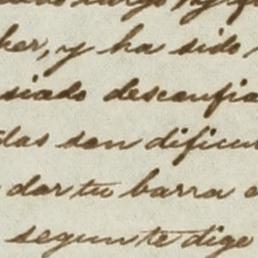 her, y ha sido
siado desconfia
das son dificul
dar tu barra a
segun te dige